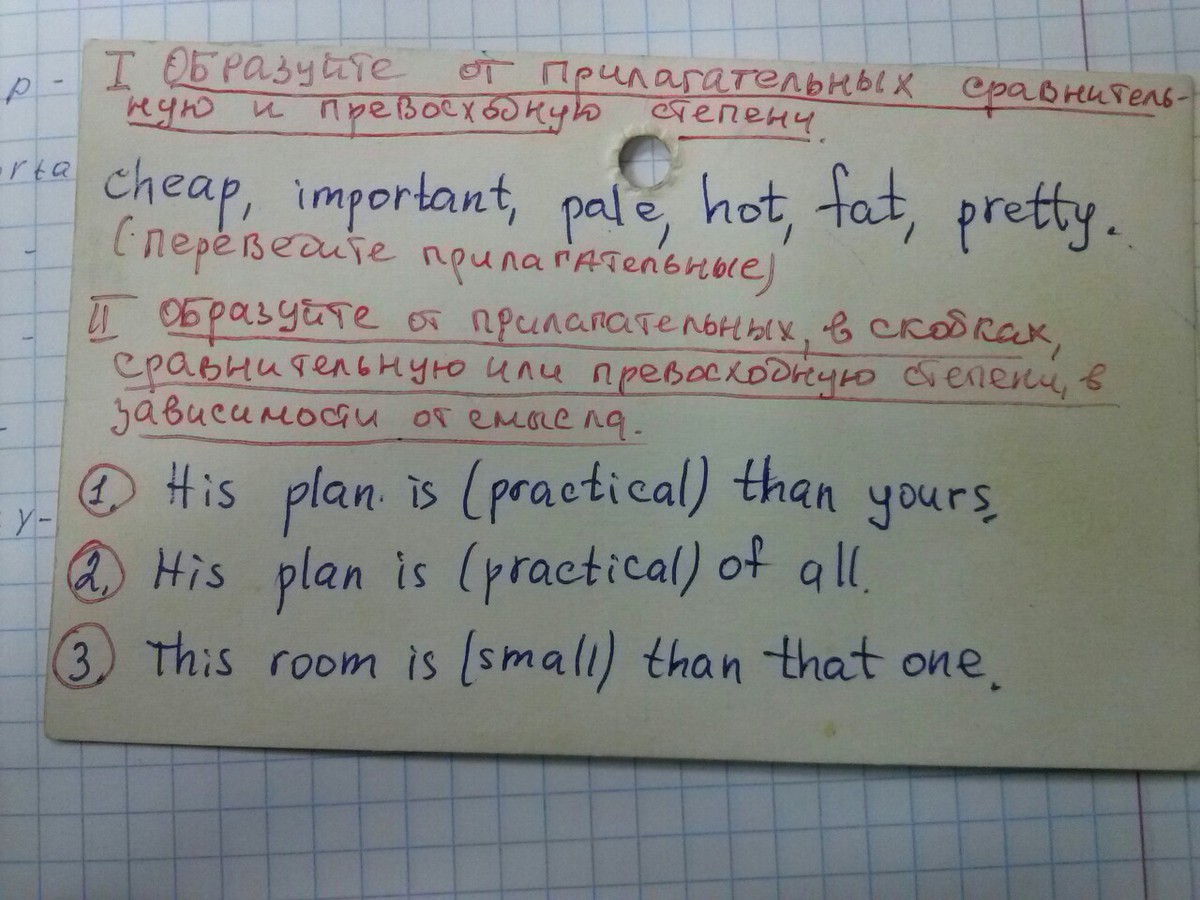 р -
I Образуйте от прилагательных сравнитель-
ную и превосходную степени.
rta
cheap, important, pale, hot, fat, pretty.
(переведите прилагательные)
II Образуйте от прилагательных, в скобках,
сравнительную или превосходную степени, в
зависимости от смысла.
1. His plan is (practical) than yours.
y-
2. His plan is (practical) of all.
3. This room is (small) than that one.